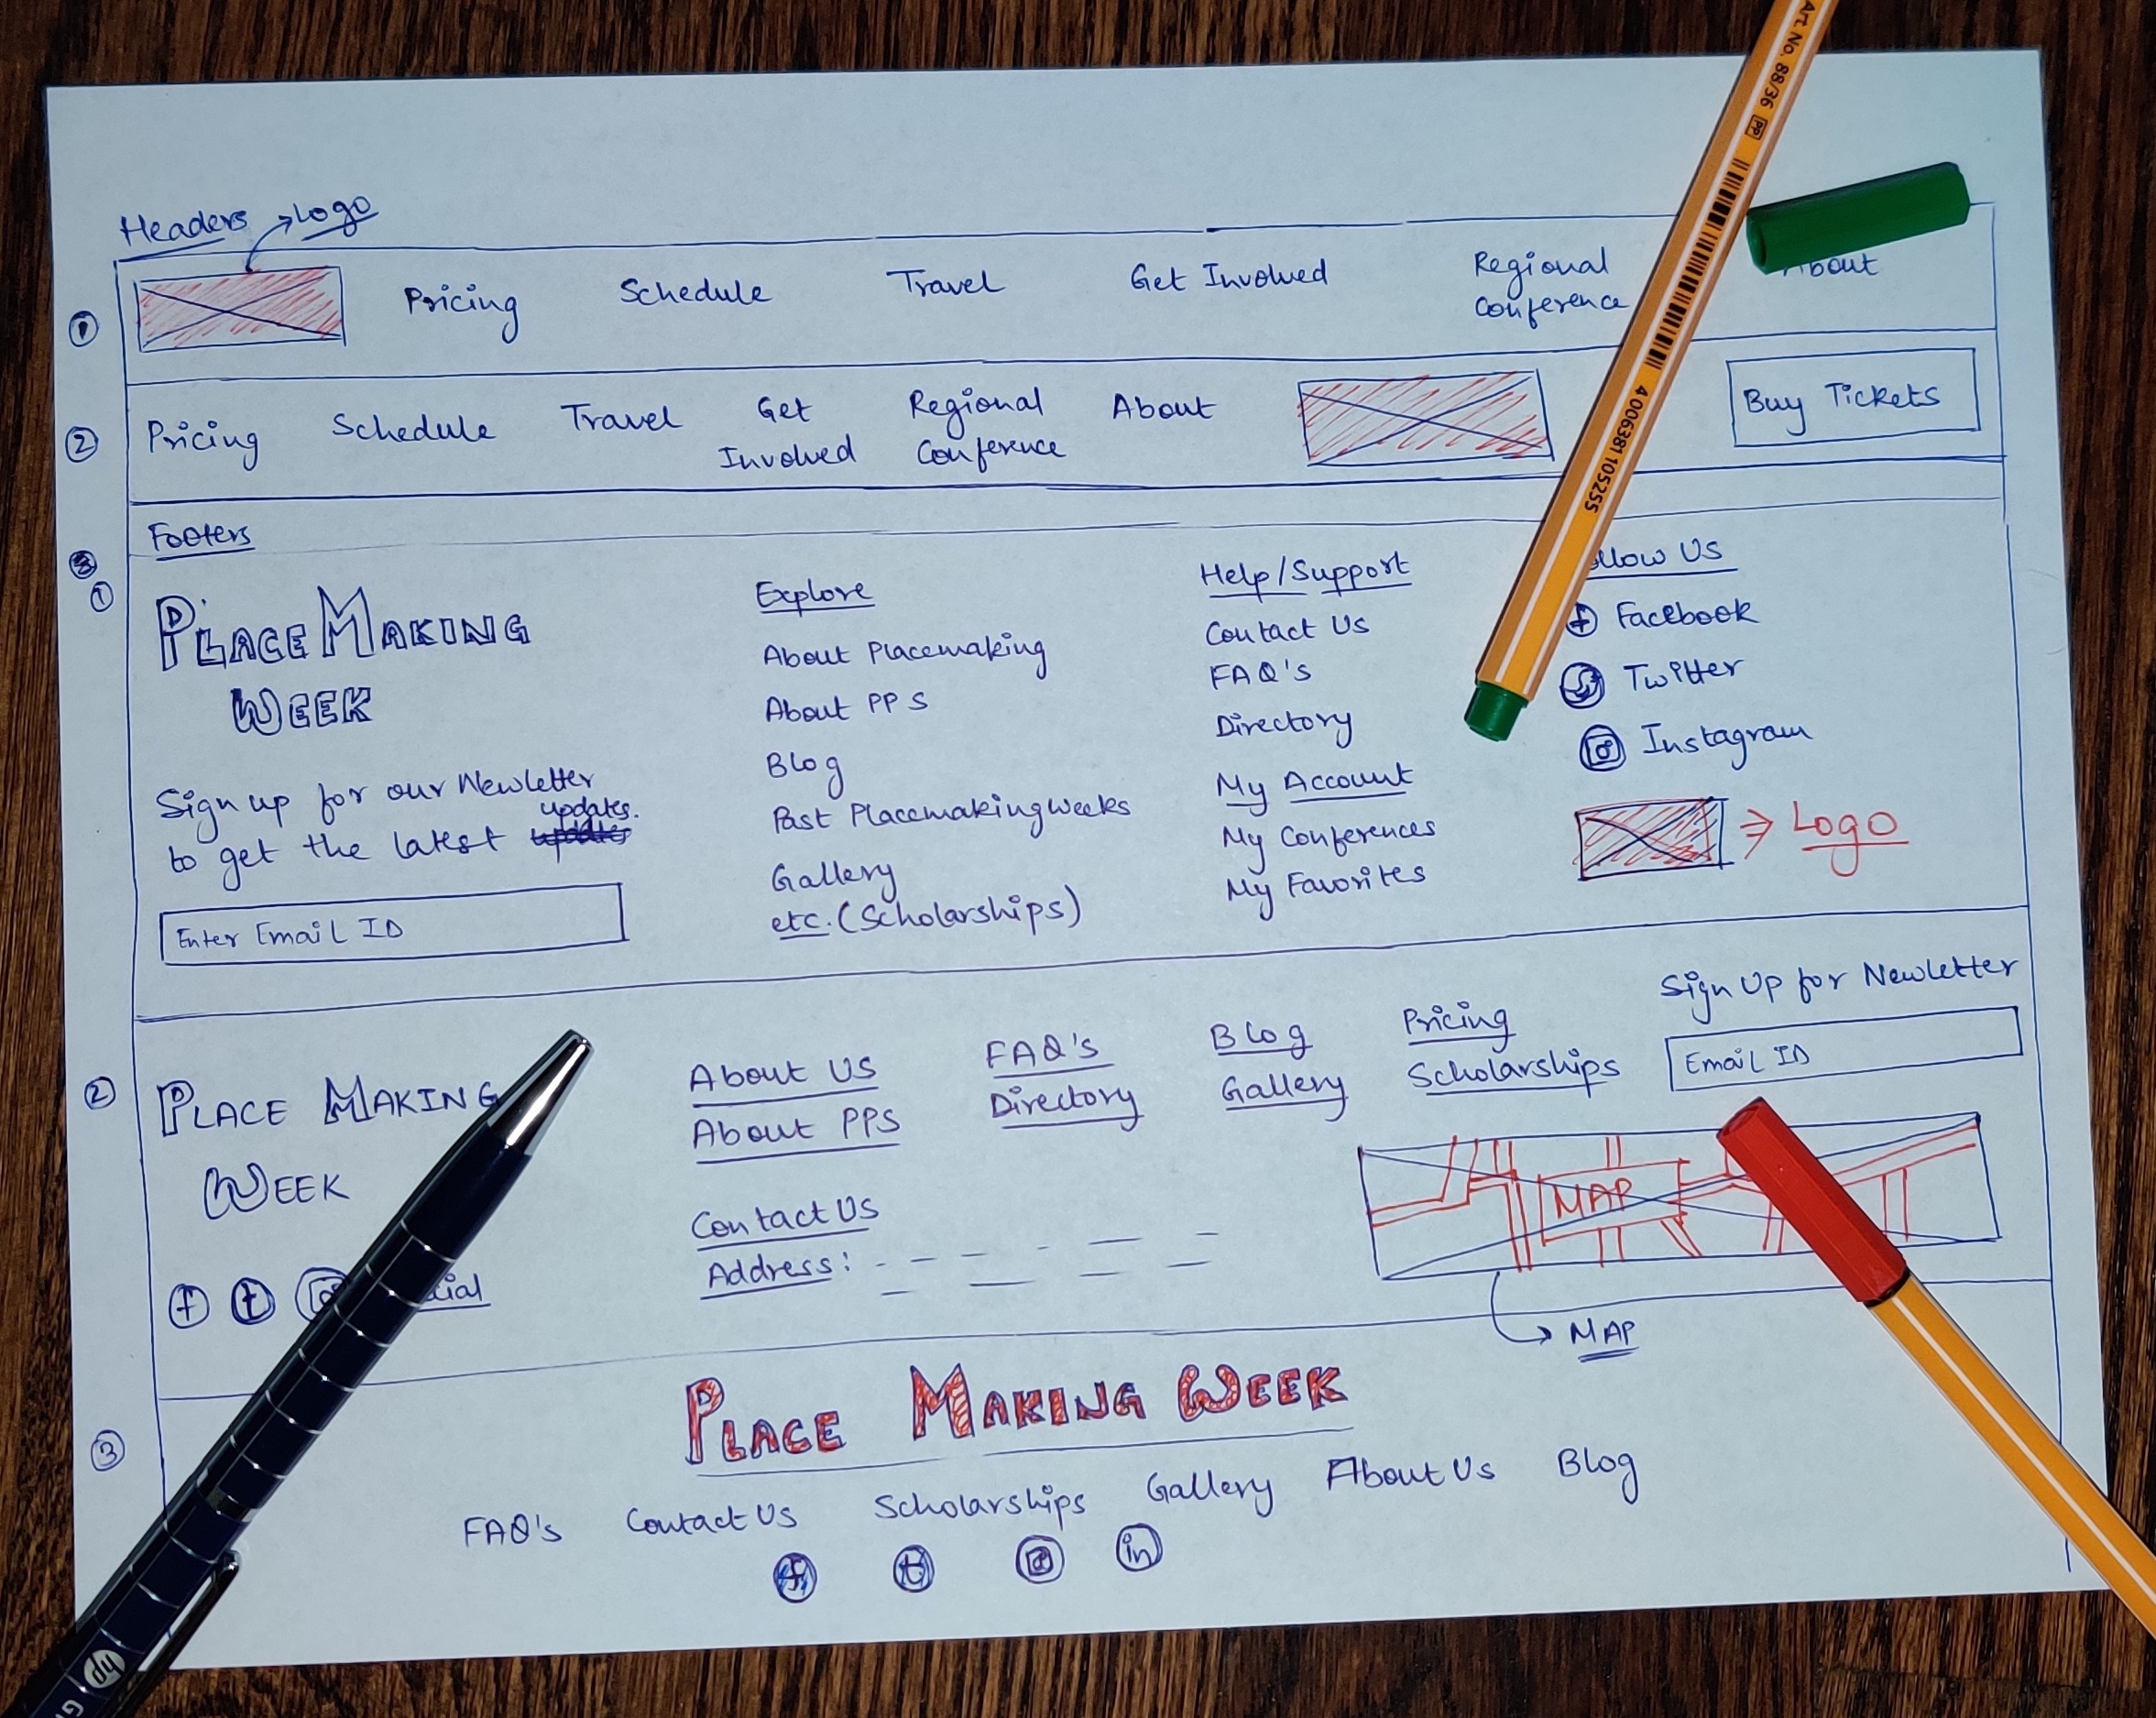 Headers → Logo
① Pricing Schedule Travel Get Involved Regional Conference About
② Pricing Schedule Travel Get Involved Regional Conference About Buy Tickets
Footers
①
PLACE MAKING
WEEK
Sign up for our Newletter
to get the latest updates.
Enter Email ID
Explore
About Placemaking
About PPS
Blog
Past Placemakingweeks
Gallery
etc. (Scholarships)
Help/Support
Contact Us
FAQ's
Directory
My Account
My Conferences
My Favorites
ollow Us
f Facebook
Twitter
Instagram
⇒ Logo
②
PLACE MAKING
WEEK
f t cial
About US
About PPS
FAQ's
Directory
Blog
Gallery
Pricing
Scholarships
Sign Up for Newletter
Email ID
Contact Us
Address:
MAP
→ MAP
③
PLACE MAKING WEEK
FAQ's Contact Us Scholarships Gallery About Us Blog
f t in
Art. No. 88/36 PP
4 006381 105255
hp